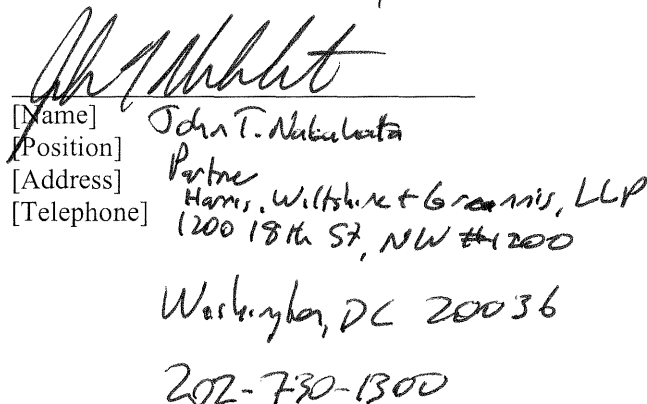 [Name] John T. Nakahata
[Position] Partner
[Address] Harris, Wiltshire + Grannis, LLP
[Telephone] 1200 18th St, NW #1200
Washington, DC 20036
202-730-1300